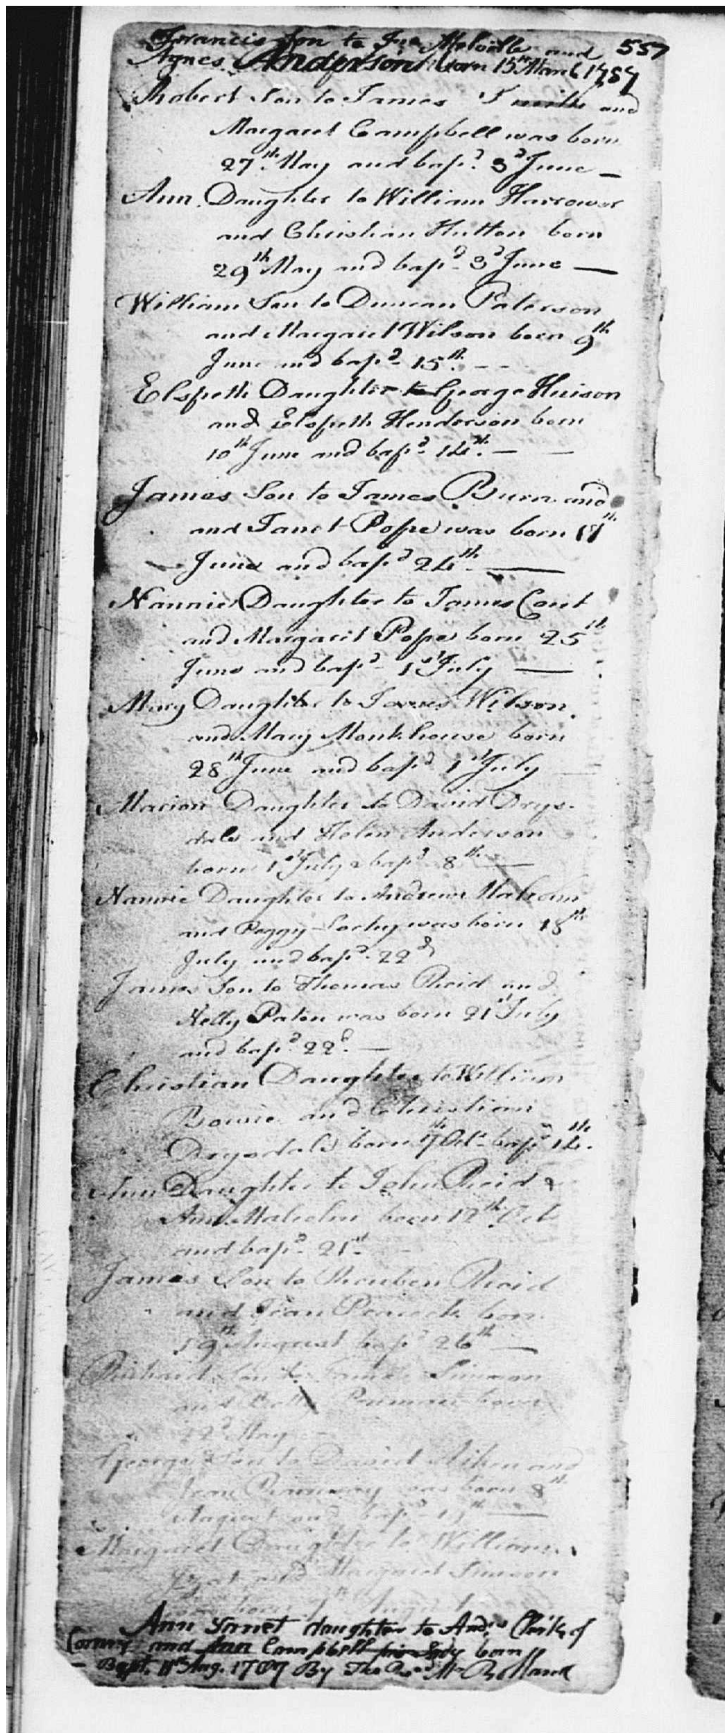 Francis Son to Jno Melville and 557
Agnes Anderson born 15th March 1787
Robert Son to James Smith and
Margaret Campbell was born
27th May and bapd 3d June
Ann Daughter to William Harrower
and Christian Hutton born
29th May and bapd 3d June
William Son to Duncan Paterson
and Margaret Wilson born 9th
June and bapd 15th
Elspeth Daughter to George Huison
and Elspeth Henderson born
10th June and bapd 14th
James Son to James Burn and
and Janet Pope was born
June and bapd 24th
Nannie Daughter to James Cout
and Margaret Pope born 25th
June and bapd 1st July
Mary Daughter to James Wilson
and Mary Monkhouse born
28th June and bapd 1st July
Marion Daughter to David Drys-
dale and Helen Anderson
born 1st July & bapd 8th
Nannie Daughter to Andrew Malcom
and Peggy was born 18th
July and bapd 22d
James Son to Thomas Reid and
Nelly Paton was born 21st July
and bapd 22d
Christian Daughter to William
Bowie and Christian
Drysdale born 7th Octr bapd 14th
Ann Daughter to John Reid &
Ann Malcolm born 12th Oct
and bapd 21st
James Son to Reuben Reid
and Jean Peacock born
19th August bapd 26th
Richard Son to James Simson
and Betty born
22d May
George Son to David Aitken and
Jean was born 8th
August and bapd
Margaret Daughter to William
and Margaret Simson
Ann Janet daughter to Andw Clerk of
and Ann Campbell born
Bapt. Aug. 1787 By The Revd Mr Bolland